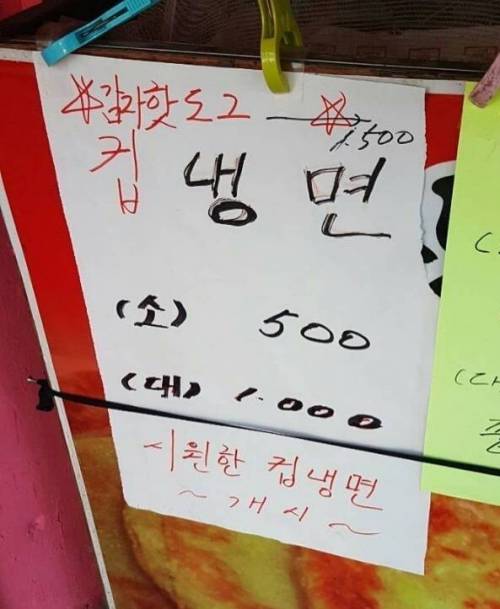 ☆감자핫도그 → ☆ 1.500
컵 냉면
(소) 500
(대) 1.000
시원한 컵냉면
~개시~
(대